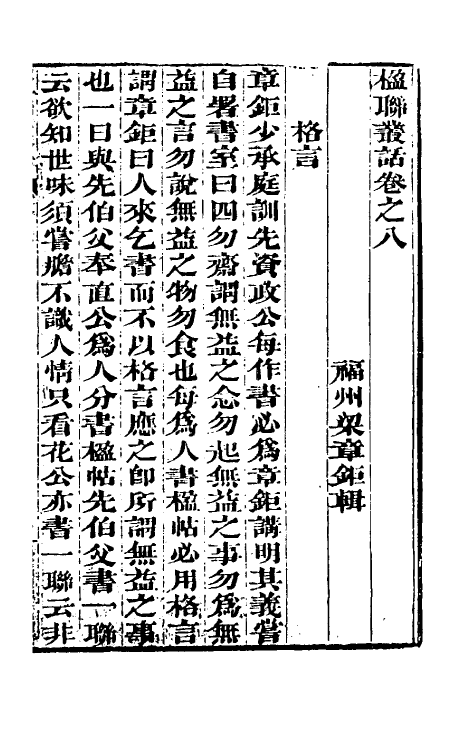 楹聯叢話卷之八
福州梁章鉅輯
格言
章鉅少承庭訓先資政公每作書必爲章鉅講明其義嘗
自署書室曰四勿齋謂無益之念勿起無益之事勿爲無
益之言勿說無益之物勿食也每爲人書楹帖必用格言
謂章鉅曰人來乞書而不以格言應之卽所謂無益之事
也一日與先伯父奉直公爲人分書楹帖先伯父書一聯
云欲知世味須嘗膽不識人情只看花公亦書一聯云非